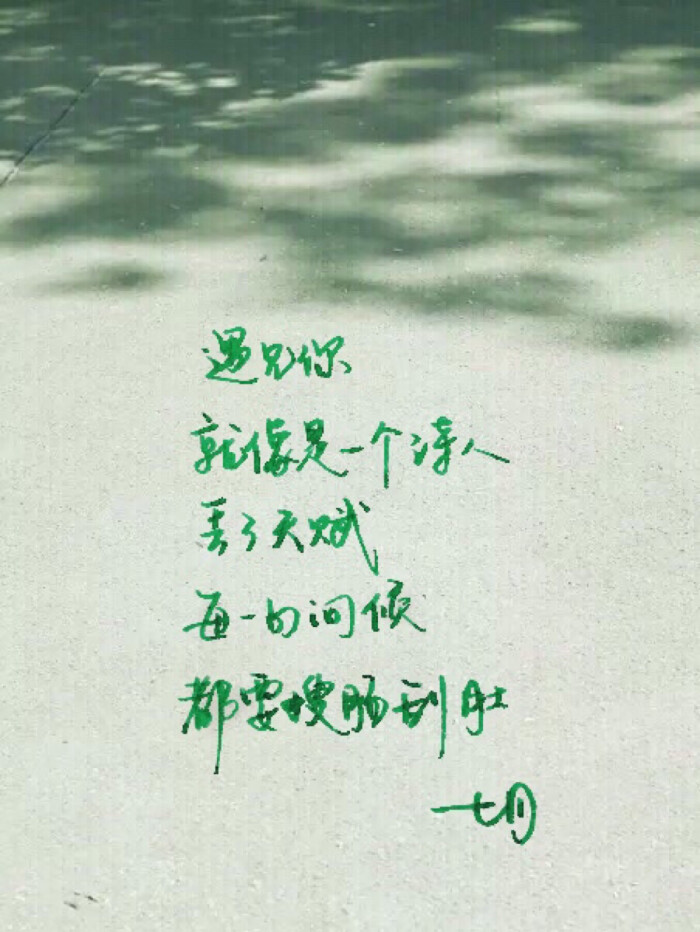 遇见你
就像是一个诗人
丢了天赋
每一句问候
都要搜肠刮肚
七月